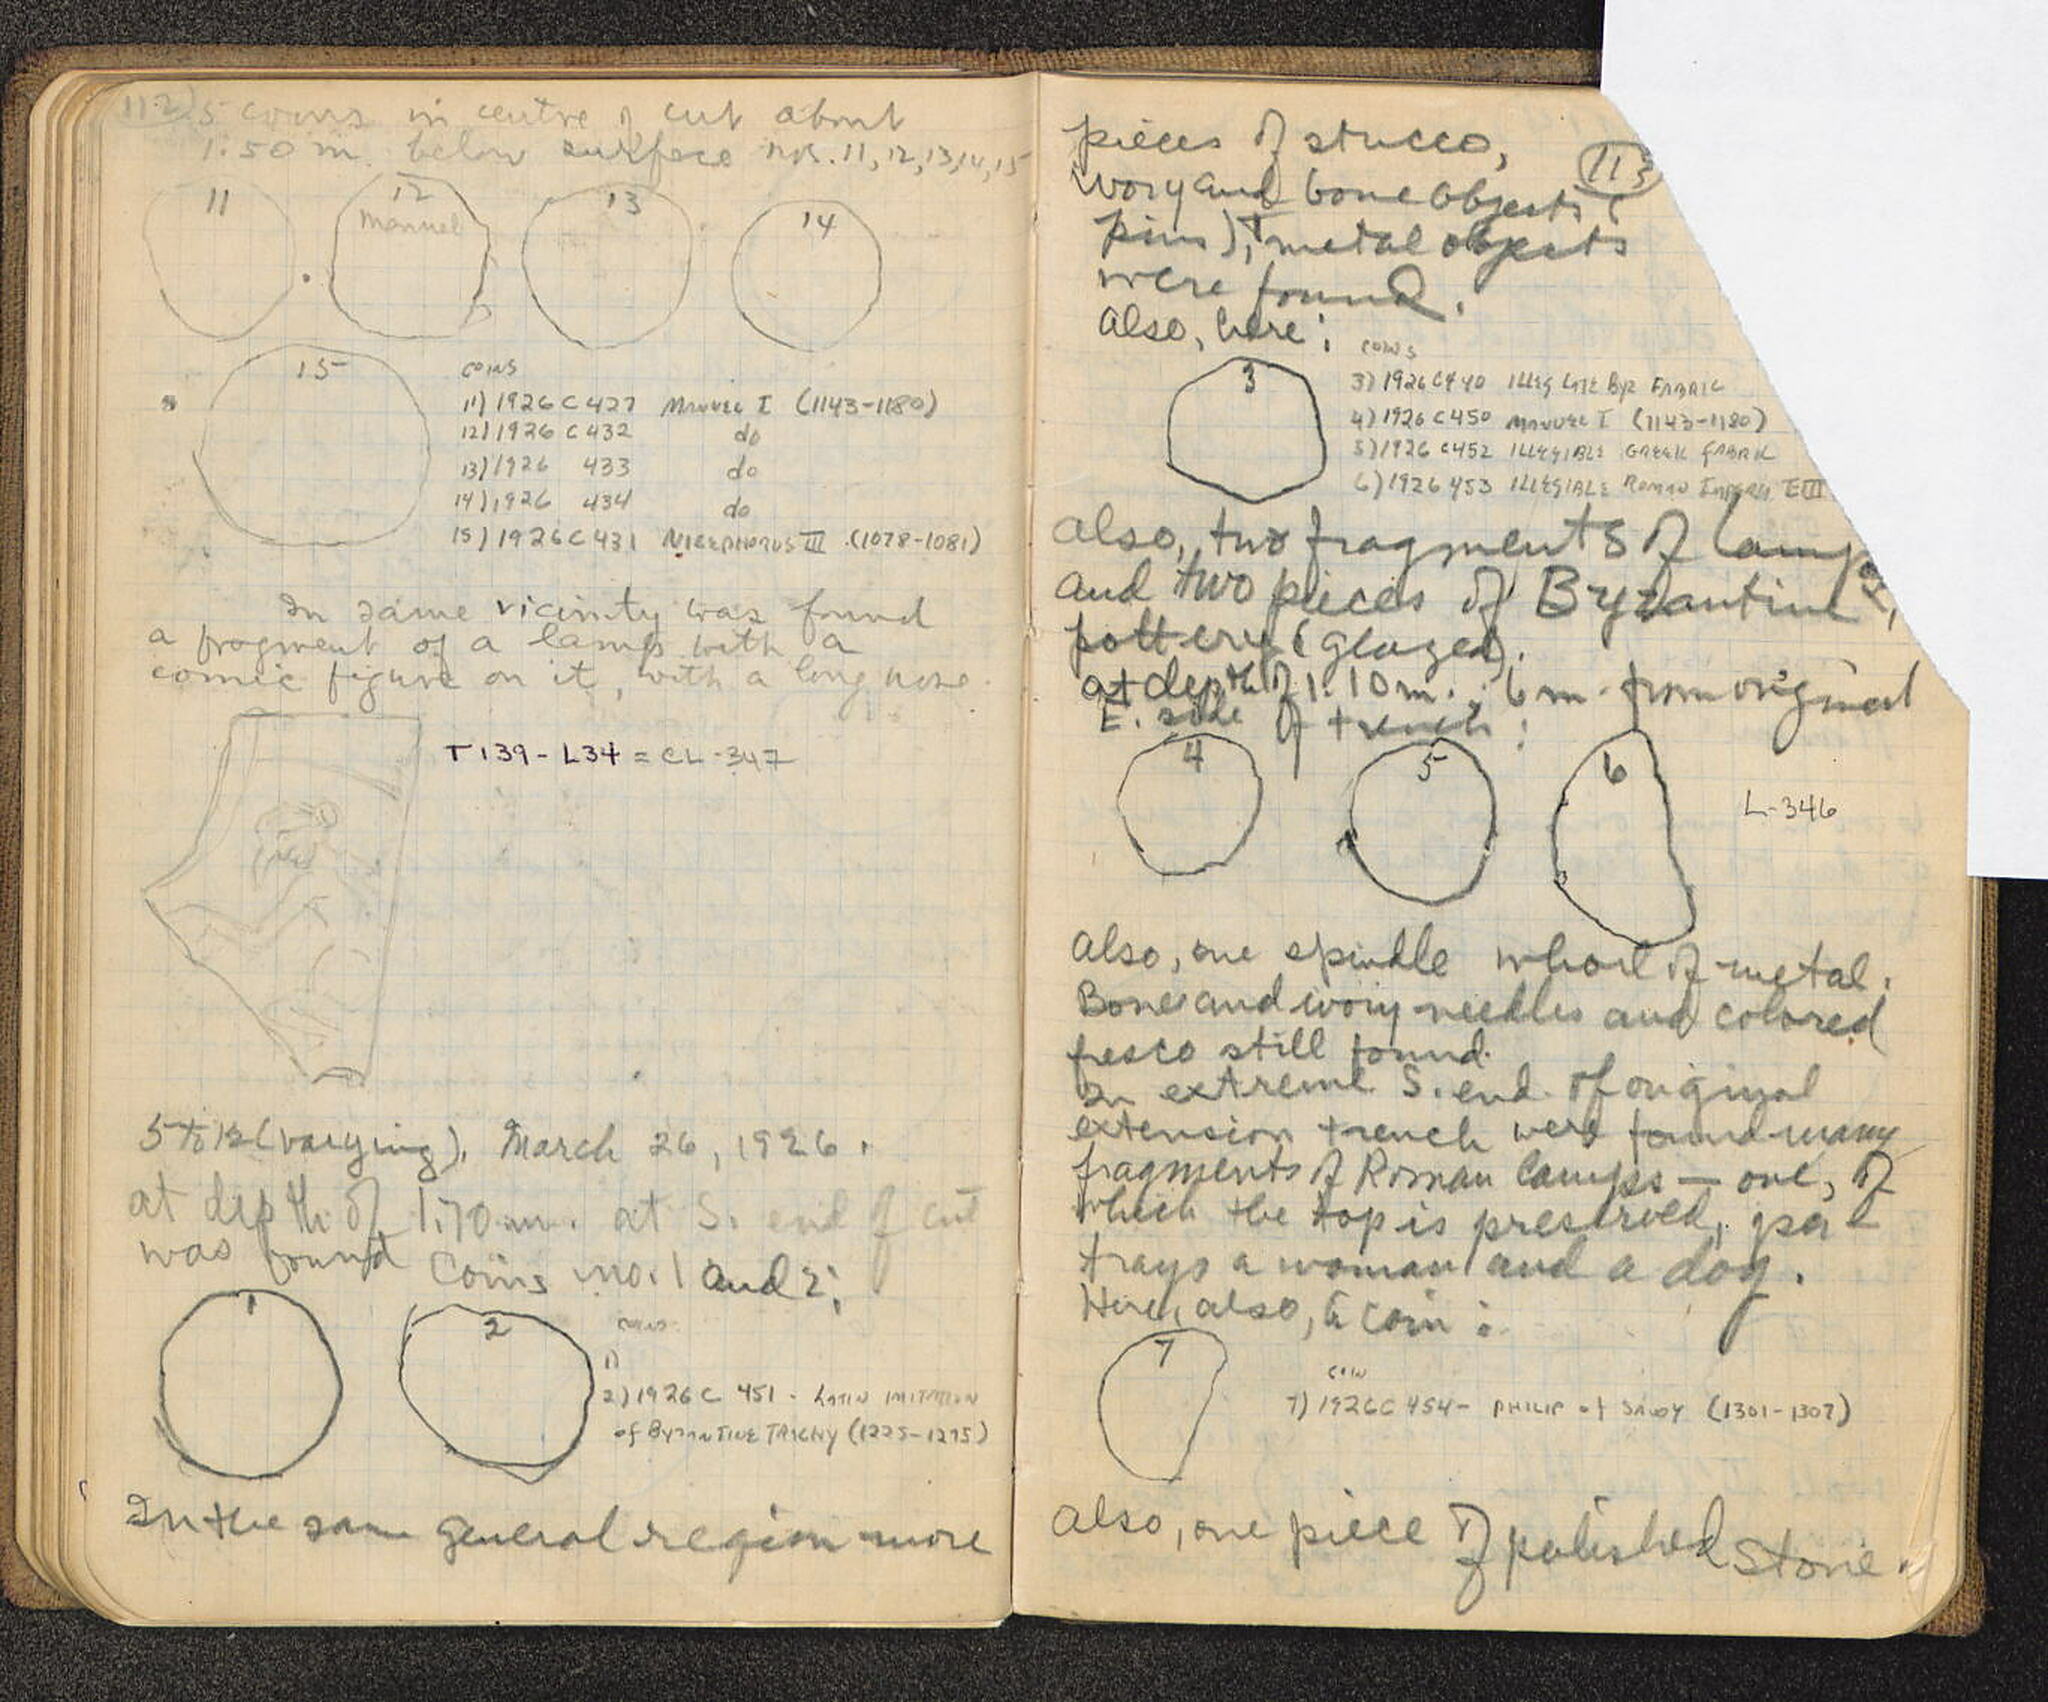 112) 5 coins in centre of cut about
1.50 m. below surface nos. 11, 12, 13, 14, 15
11
12
Manuel
13
14
15
COINS
11) 1926 C 427 MANUEL I (1143-1180)
12) 1926 C 432 do
13) 1926 433 do
14) 1926 434 do
15) 1926 C 431 NICEPHORUS III (1078-1081)
In same vicinity was found
a fragment of a lamp with a
comic figure on it, with a long nose.
T139 - L34 = CL-347
5 to 12 (varying). March 26, 1926.
at depth of 1.70 m. at S. end of cut
was found Coins no. 1 and 2:
1
2
COINS
1)
2) 1926 C 451 - LATIN IMITATION
of BYZANTINE TRACHY (1225-1275)
In the same general region more
113
pieces of stucco,
ivory and bone objects (
pins), + metal objects
were found.
Also, here:
COINS
3
3) 1926 C440 ILLEG LATE BYZ FABRIC
4) 1926 C450 MANUEL I (1143-1180)
5) 1926 C452 ILLEGIBLE GREEK FABRIC
6) 1926 453 ILLEGIBLE ROMAN IMPERIAL
Also, two fragments of lamps
and two pieces of Byzantine
pottery (glazed).
At depth of 1.10 m., 6 m. from original
E. side of trench:
4
5
6
L-346
Also, one spindle whorl of metal.
Bone and ivory needles and colored
fresco still found.
In extreme S. end of original
extension trench were found many
fragments of Roman lamps — one, of
which the top is preserved, por-
trays a woman and a dog.
Here, also, a coin:
7
COIN
7) 1926 C 454 - PHILIP of SAVOY (1301-1307)
Also, one piece of polished stone.